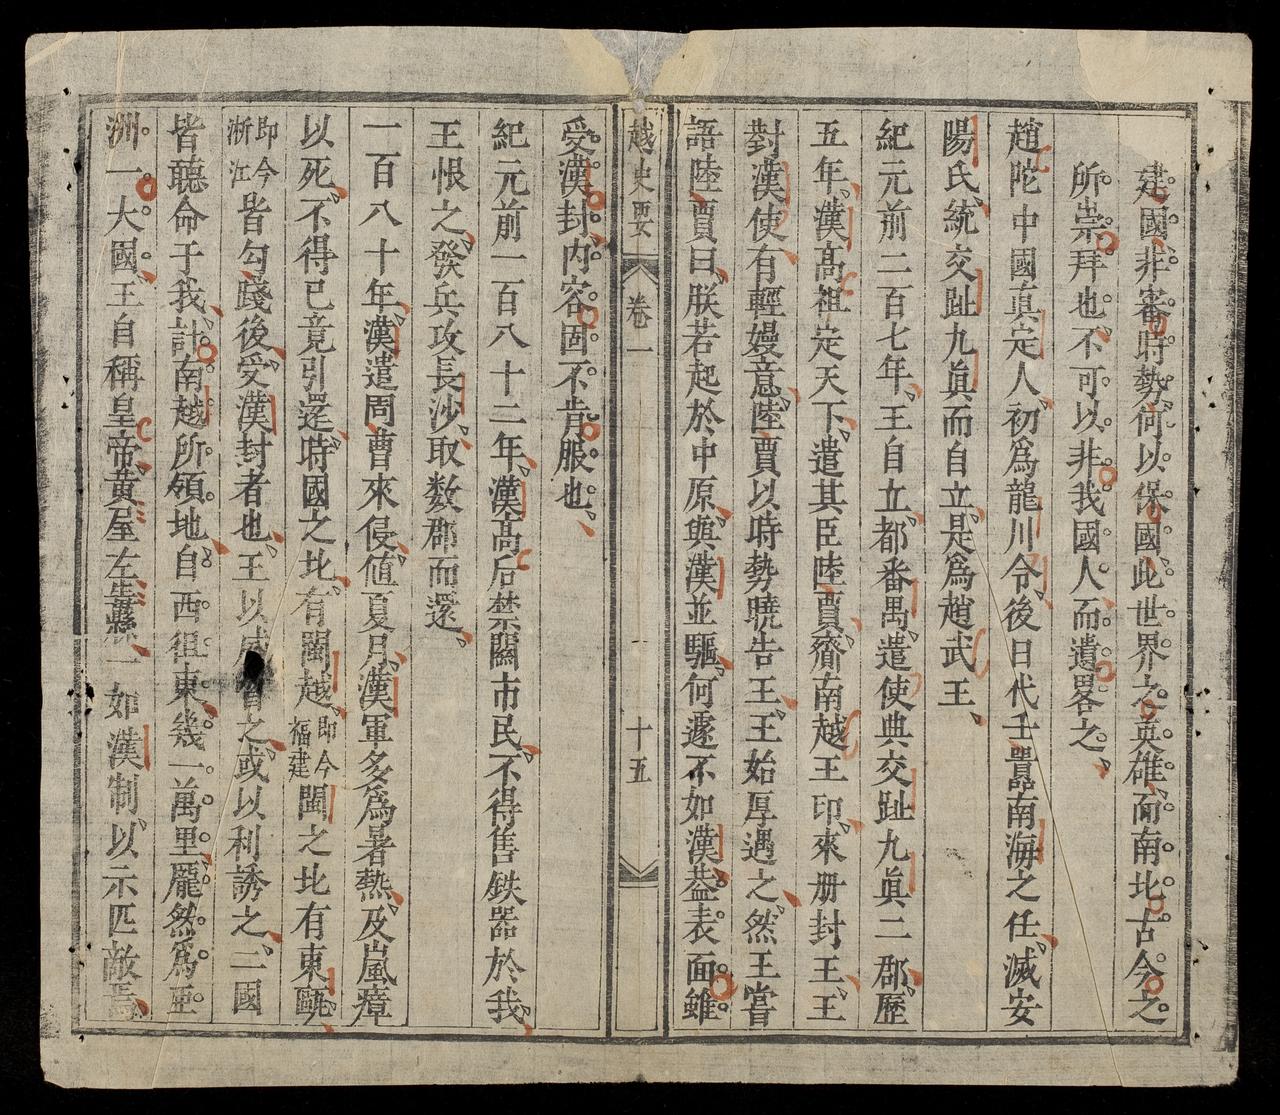 建國、非審時勢、何以保國、此世界之英雄、而南北古今之
所崇拜也、不可以非我國人而遺畧之、
趙陀中國眞定人、初爲龍川令、後日代壬嚚南海之任、滅安
陽氏、統交趾九眞而自立、是爲趙武王、
紀元前二百七年、王自立、都番禺、遣使典交趾九眞二郡、歷
五年、漢高祖定天下、遣其臣陸賈齎南越王印、來册封王、王
對漢使有輕嫚意、陸賈以時勢曉告王、王始厚遇之、然王嘗
語陸賈曰、朕若起於中原、與漢並驅、何遽不如漢、葢表面雖
越史要 卷一 十五
受漢封、內容固不肯服也、
紀元前一百八十二年、漢高后禁關市民、不得售鉄器於我、
王恨之、發兵攻長沙、取数郡而還、
一百八十年、漢遣周曹來侵、値夏月、漢軍多爲暑熱、及嵐瘴
以死、不得已竟引還、時國之北、有閩越、即今福建閩之北有東甌、
即今浙江皆勾踐後、受漢封者也、王以威之、或以利誘之、二國
皆聽命于我、計南越所領地、自西徂東、幾一萬里、龐然爲亞
洲一大國、王自稱皇帝、黃屋左纛、一如漢制、以示匹敵焉、